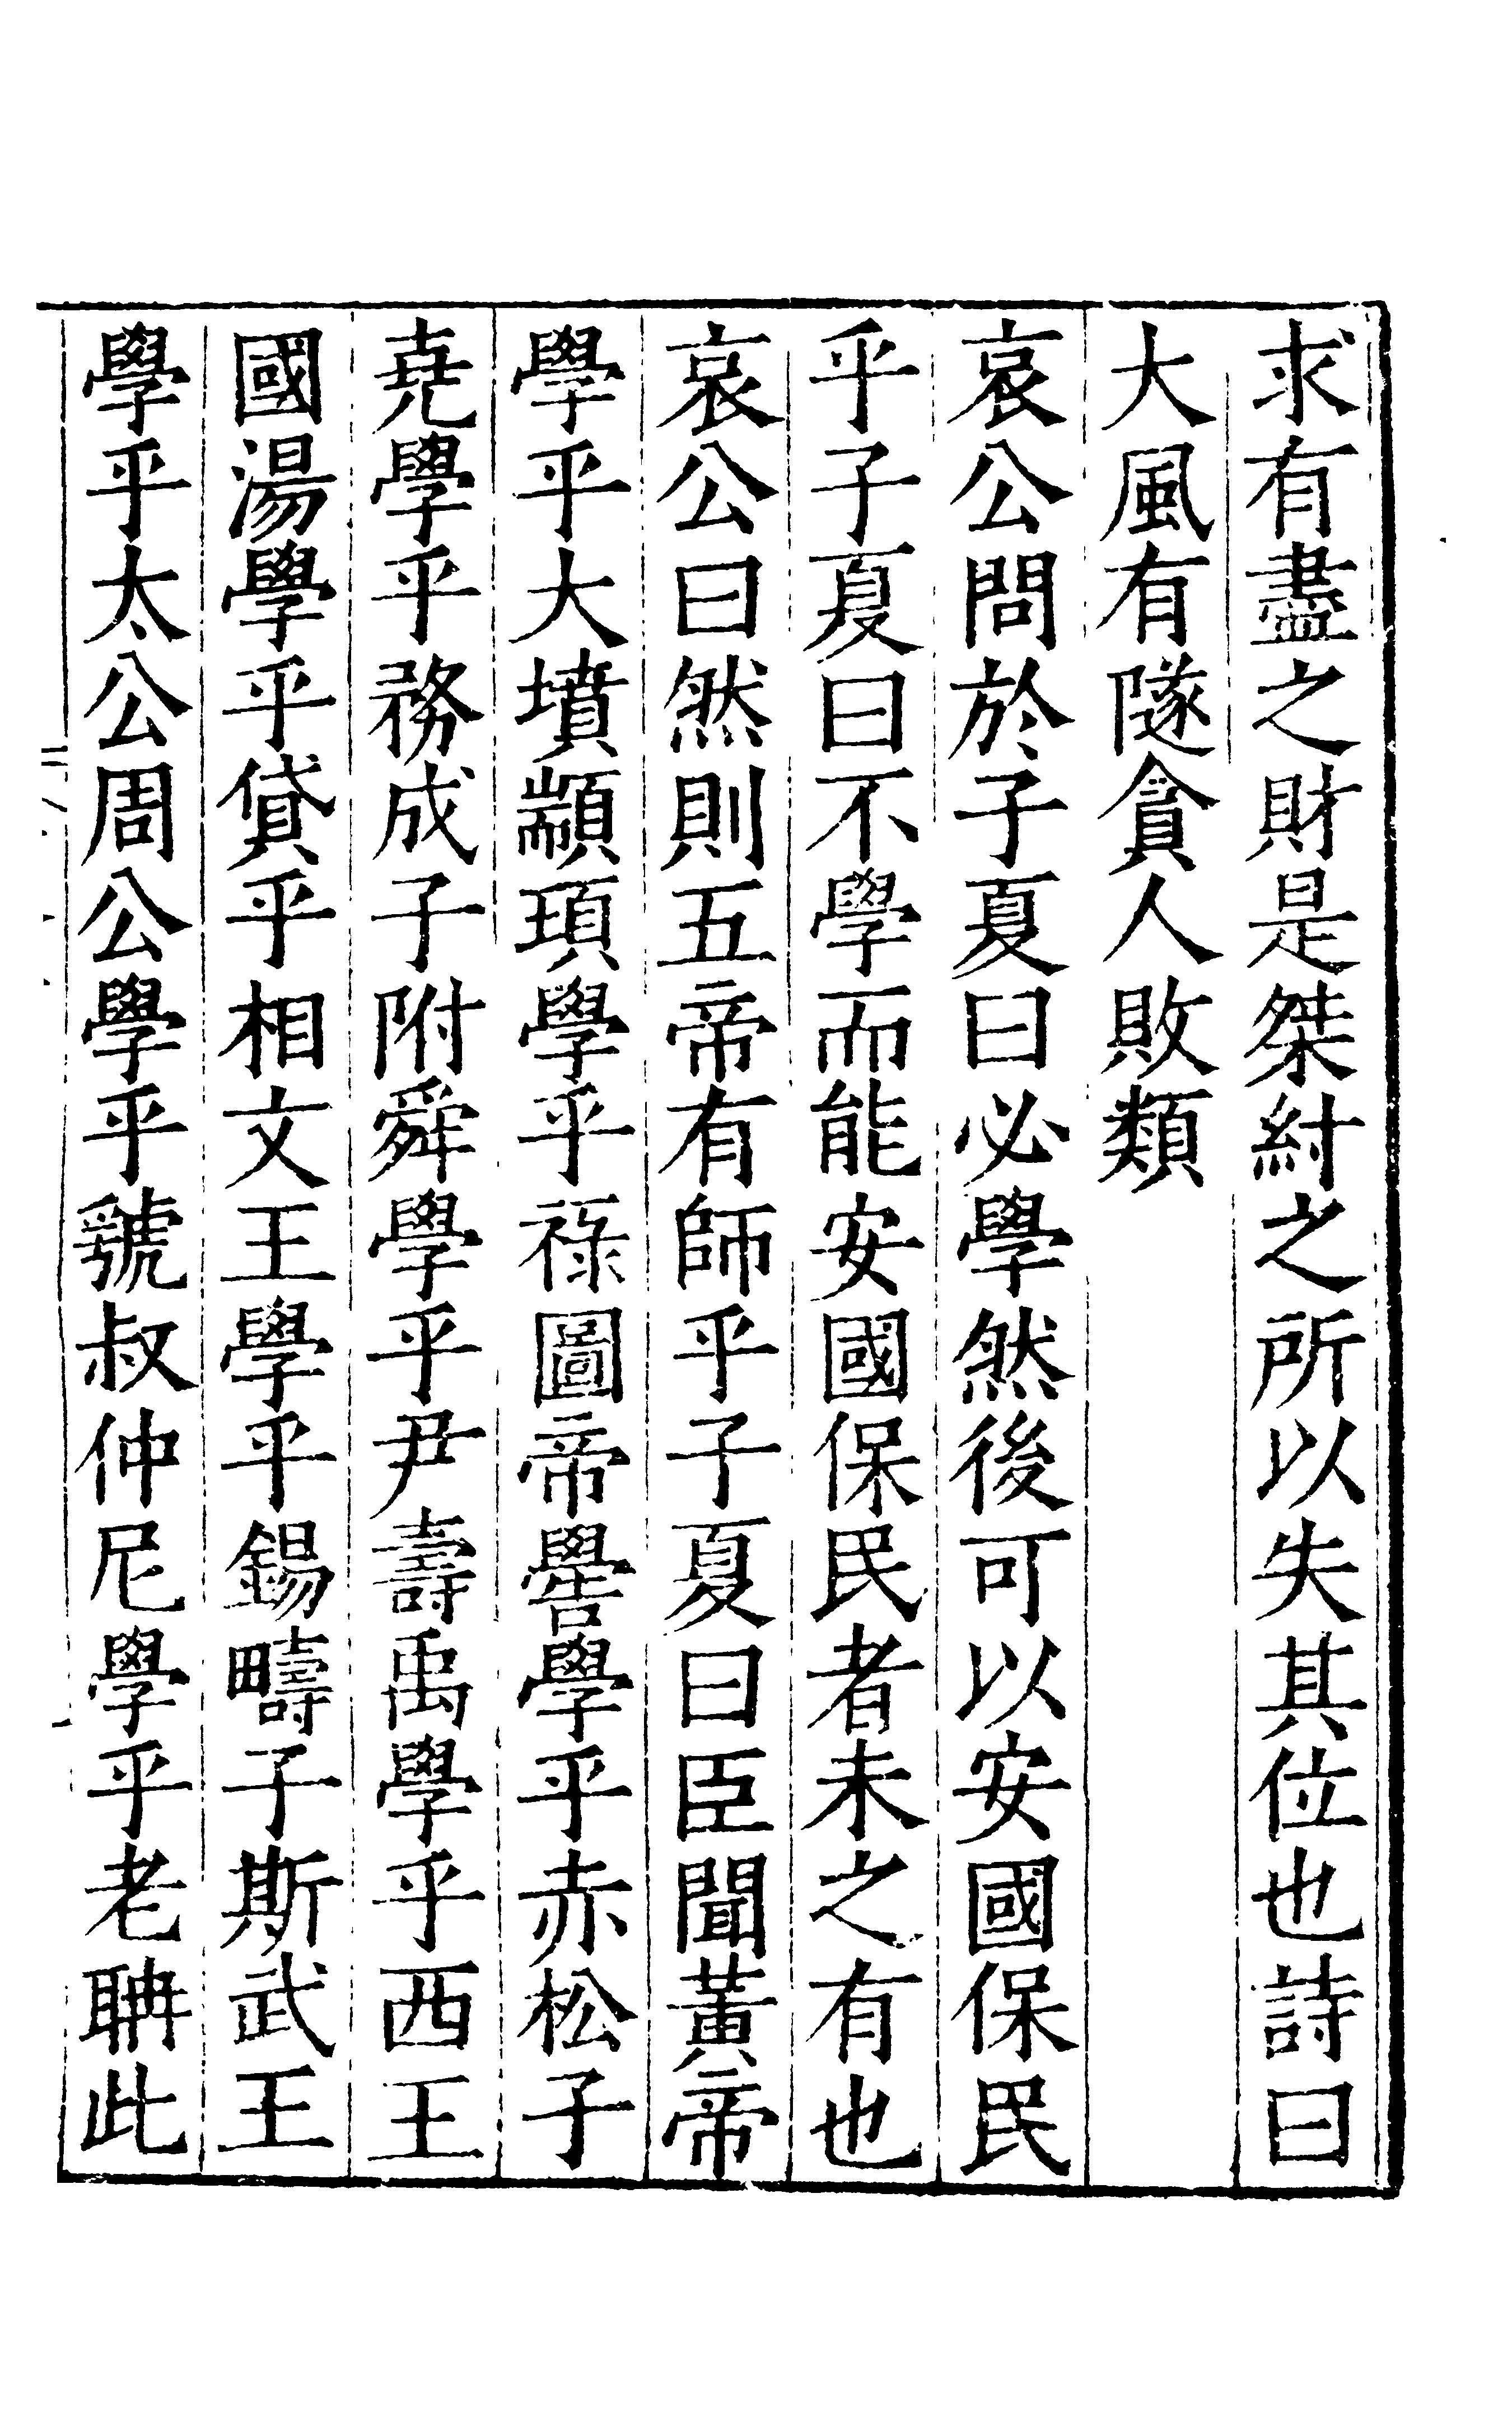 求有盡之財是桀紂之所以失其位也詩曰
大風有隧貪人敗類
哀公問於子夏曰必學然後可以安國保民
乎子夏曰不學而能安國保民者未之有也
哀公曰然則五帝有師乎子夏曰臣聞黃帝
學乎大墳顓頊學乎祿圖帝嚳學乎赤松子
堯學乎務成子附舜學乎尹壽禹學乎西王
國湯學乎貸乎相文王學乎錫疇子斯武王
學乎太公周公學乎虢叔仲尼學乎老聃此